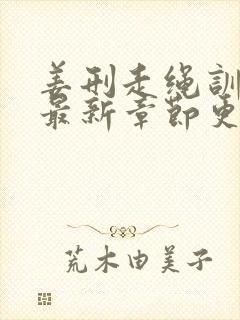 姜刑走绳訓
最新章節更
荒木由美子